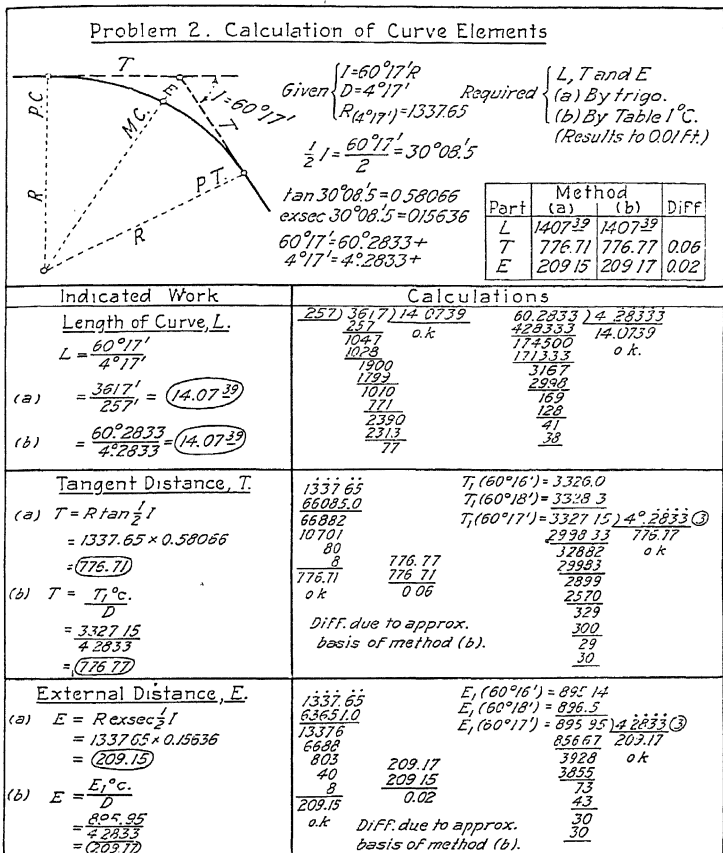 Problem 2. Calculation of Curve Elements
T
P.C.
M.C.
E
I=60°17'
T
P.T.
R
R
Given
I=60°17'R
D=4°17'
R(4°17')=1337.65
Required
L, T and E
(a) By trigo.
(b) By Table 1°C.
(Results to 0.01 ft.)
½ I = 60°17'/2 = 30°08.'5
tan 30°08.'5 = 0.58066
exsec 30°08.'5 = 015636
60°17' = 60.°2833+
4°17' = 4.°2833+
Part Method (a) (b) Diff
L 1407 39 1407 39
T 776.71 776.77 0.06
E 209 15 209 17 0.02
Indicated Work
Calculations
Length of Curve, L.
L = 60°17'/4°17'
(a) = 3617'/257' = 14.07 39
(b) = 60.°2833/4.°2833 = 14.07 39
257) 3617 (14 0739
257 o.k
1047
1028
1900
1799
1010
771
2390
2313
77
60.2833) 4.28333
428333 14.0739
174500 o k.
171333
3167
2998
169
128
41
38
Tangent Distance, T.
(a) T = R tan ½ I
= 1337.65 × 0.58066
= 776.71
(b) T = T₁°c./D
= 3327 15/4 2833
= 776 77
1337 65
66085.0
66882
10701
80
8
776.71
o k
776.77
776 71
0 06
Diff. due to approx.
basis of method (b).
T₁(60°16') = 3326.0
T₁(60°18') = 3328 3
T₁(60°17') = 3327 15) 4°.2833 ③
2998 33 776.17
32882 o k
29983
2899
2570
329
300
29
30
External Distance, E.
(a) E = R exsec ½ I
= 1337 65 × 0.15636
= 209.15
(b) E = E₁°c./D
= 895.95/4 2833
= 209.17
1337.65
63651.0
13376
6688
803
40
8
209.15
o.k
209.17
209 15
0.02
Diff. due to approx.
basis of method (b).
E₁(60°16') = 895 14
E₁(60°18') = 896.5
E₁(60°17') = 895 95) 4 2833 ③
85667 209.17
3928 o k
3855
73
43
30
30